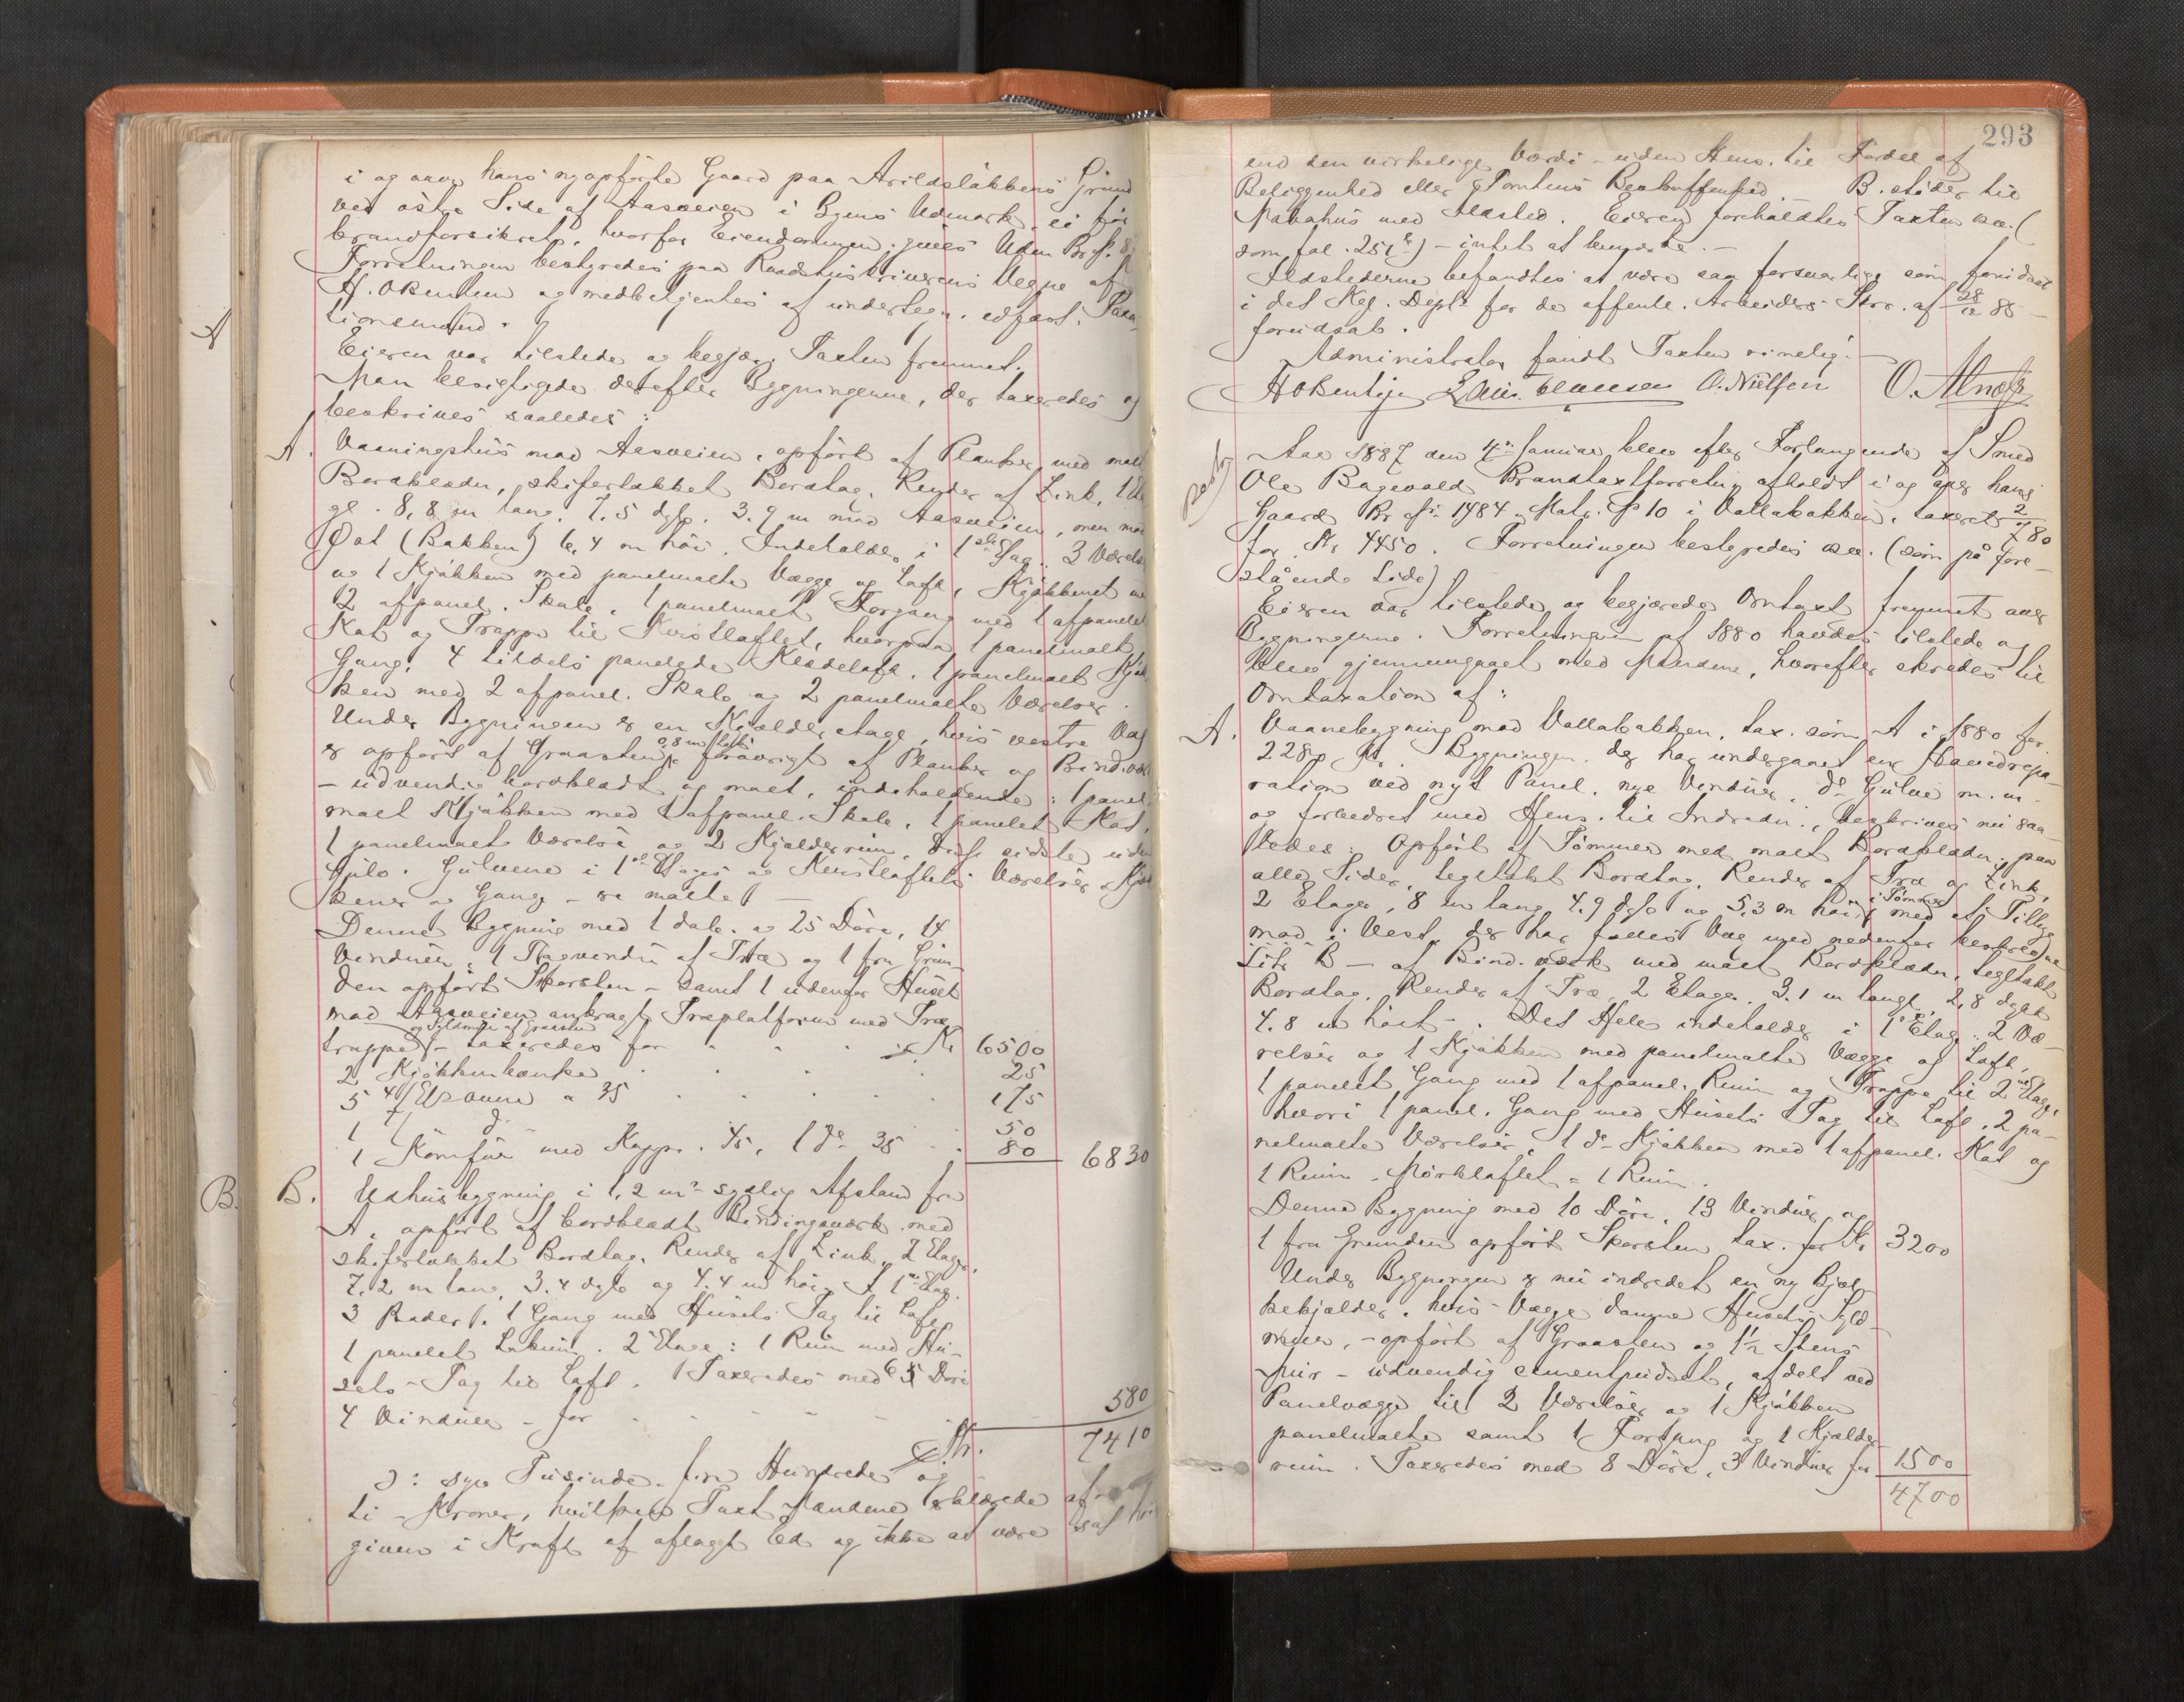 i og over hans nyopførte Gaard paa Arildsløkkens Grund
ved østre Side af Aasveien i Byens Udmark, ei før
brandforsikret, hvorfor Eiendommen gives
Forretningen bestyredes paa Raadstuskriverens Vegne af
H. OBentzen og medbetjentes af undertegn. edfæst. Taxa-
tionsmænd.
Eieren var tilstede og begjær. Taxten fremmet.
Man besigtigede derefter Bygningerne, der taxeredes og
beskrives saaledes:
A
A. Vaaningshus mod Aasveien, opført af Planker, med malt
Bordklædn., skifertækket Bordtag, Render af Zink, 1 Eta-
ge. 8,8 m lang, 7,5 dyb. 3.9 m mod Aasveien, men mod
Øst (Bakken) 6,4 m høi. Indeholder i 1ste Etag. 3 Værelser
og 1 Kjøkken med panelmalte Vægge og Loft, Kjøkkenet med
2 afpanel. Skabe, 1 panelmalt Forgang med 1 afpanelet
Kot og Trappe til Kvistloftet, hvorpaa 1 panelmalt
Gang, 4 tildels panelede Klædeloft, 1 panelmalt Kjøk-
ken med 2 afpanel. Skabe og 2 panelmalte Værelser.
Under Bygningen er en Kjælderetage, hvis vestre Væg
er opført af Graasten, 0,8 m tyk, forøvrigt af Planker og Bind.værk
- udvendig bordklædt og malt, indeholdende: 1 panel-
malt Kjøkken med 1 afpanel. Skab, 1 panelet Kot,
1 panelmalt Værelse og 2 Kjælderrum, disse sidste uden
Gulv. Gulvene i 1ste Etages og Kvistloftets Værelser, Kjøk-
kener og Gange - er malte. -
Denne Bygning med 1 dob. og 25 Døre, 14
Vinduer, 1 Tagvindu af Træ og 1 fra Grun-
den opført Skorsten - samt 1 udenfor Huset
mod Aasveien anbragt Træplatform med Træ-
og Fyldmur af Graasten
trappe - taxeredes for . . . Kr 6500
2 Kjøkkenbænke . . . 25
5 4/ Etr ovne a 35 . . . 175
1 7/ do . . . 50
1 Komfur med Kappe. 45, 1 do 35 . . 80 6830
B.
B. Udhusbygning i 1,2 m's sydlig Afstand fra
A, opført af bordklædt Bindingsværk med
skifertækket Bordtag, Render af Zink, 2 Etager,
7,2 m lang, 3.4 dyb og 4.4 m høi. I 1ste Etag.
3 Boder, 1 Gang med Husets Tag til Loft,
1 panelet Lokum. 2 Etage: 1 Rum med Hu-
sets Tag til Loft. Taxeredes med 6 Døre
4 Vinduer - for . . . 580
Kr. 7410
ɔ: syv Tusinde fire Hundrede og
ti - Kroner, hvilken Taxt Mændene erklærede af-
given i Kraft af aflagt Ed og ikke at være sat høi-
293
end den virkelige Værdi - uden Hens. til Fordel af
Beliggenhed eller Tomtens Beskaffenhed. B. støder til
Nabohus med Ildsted. Eieren foreholdtes Taxten osv. (
som fol. 251) - intet at bemærke. -
Ildstederne befandtes at være saa forsvarlige som forudsat
i det Kgl. Depts for de offentl. Arbeiders Skr. af 28/12 85 -
forudsat.
Administrator fandt Taxten rimelig. -
HOBentzen Clausen O. Nielsen O. Alnæs
Aar 1887 den 4de Januar blev efter Forlangende af Smed
Ole Bagevold Brandtaxtforretning afholdt i og over hans
Gaard Br № 1484, Matr. № 10 i Vollabakken, taxeret 2/7 80
for Kr 4450. Forretningen bestyredes osv. (som på fore-
stående Side)
Eieren var tilstede og begjærede Omtaxt fremmet over
Bygningerne. Forretningen af 1880 havdes tilstede og
blev gjennemgaaet med Mændene, hvorefter skredes til
Omtaxation af:
A. Vaanebygning mod Vollabakken, tax. som A i 1880 for
2280 Kr. Bygningen, der har undergaaet en Hovedrepa-
ration ved nyt Panel, nye Vinduer, do Gulve m. m.
og forbedret med Hens. til Indredn., beskrives nu saa-
ledes: Opført af Tømmer med malt Bordklædn. paa
alle Sider, teglstækt Bordtag, Render af Træ og Zink,
2 Etager, 8 m lang, 4.9 dyb og 5,3 m høi i Tømmer med et Tillæg
mod Vest, der har fælles Væg med nedenfor beskrevne
Litr B - af Bind.værk med malt Bordklædn., tegltækt
Bordtag, Render af Træ, 2 Etager, 3.1 m langt, 2,8 dybt
4.8 m høit -. Det Hele indeholder i 1ste Etage: 2 Væ-
relser og 1 Kjøkken med panelmalte Vægge og Loft,
1 panelet Gang med 1 afpanel. Rum og Trappe til 2den Etage,
hvori 1 panel. Gang med Husets Tag til Loft, 2 pa-
nelmalte Værelser, 1 do Kjøkken med 1 afpanel. Kot og
1 Rum. Mørkloftet - 1 Rum.
Denne Bygning med 10 Døre, 13 Vinduer og
1 fra Grunden opført Skorsten tax. for Kr 3200
Under Bygningen er nu indredet en ny Bjæl-
kekjælder, hvis Vægge danne Husets Fyld-
mure, - opført af Graasten og 1½ Stens
Mur - udvendig cementpudset, afdelt ved
Panelvægge til 2 Værelser og 1 Kjøkken
panelmalte samt 1 Forgang og 1 Kjælder-
rum. Taxeredes med 8 Døre, 3 Vinduer for 1500
4700